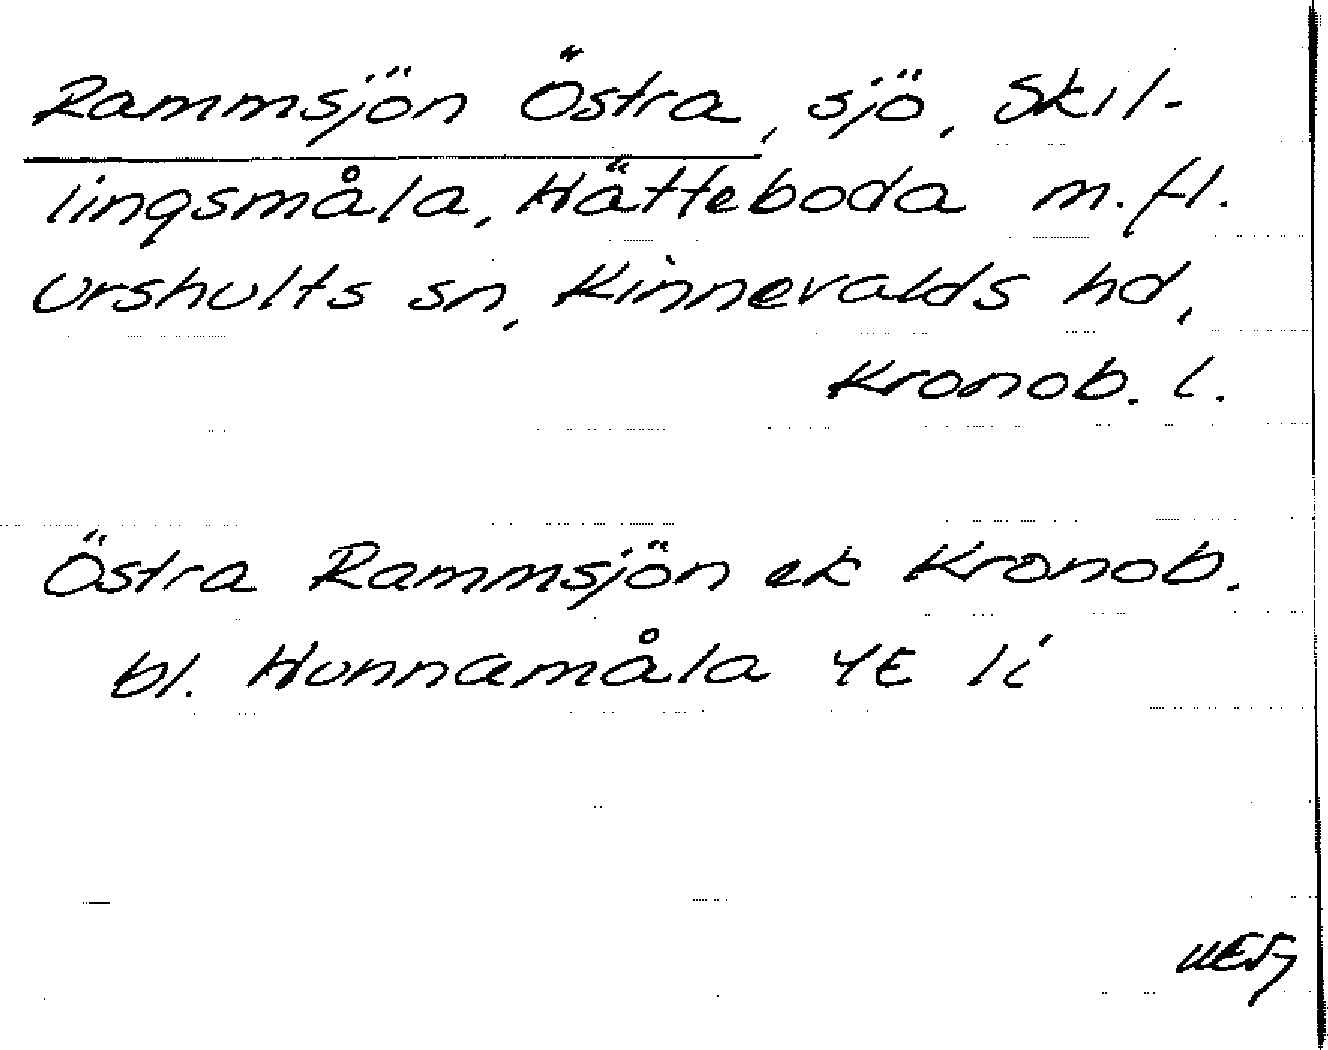 Rammsjön Östra, sjö, Skil-
lingsmåla, Hätteboda m.fl.
Urshults sn, Kinnevalds hd,
Kronob. l.
Östra Rammsjön ek Kronob.
bl. Hunnamåla 4E li